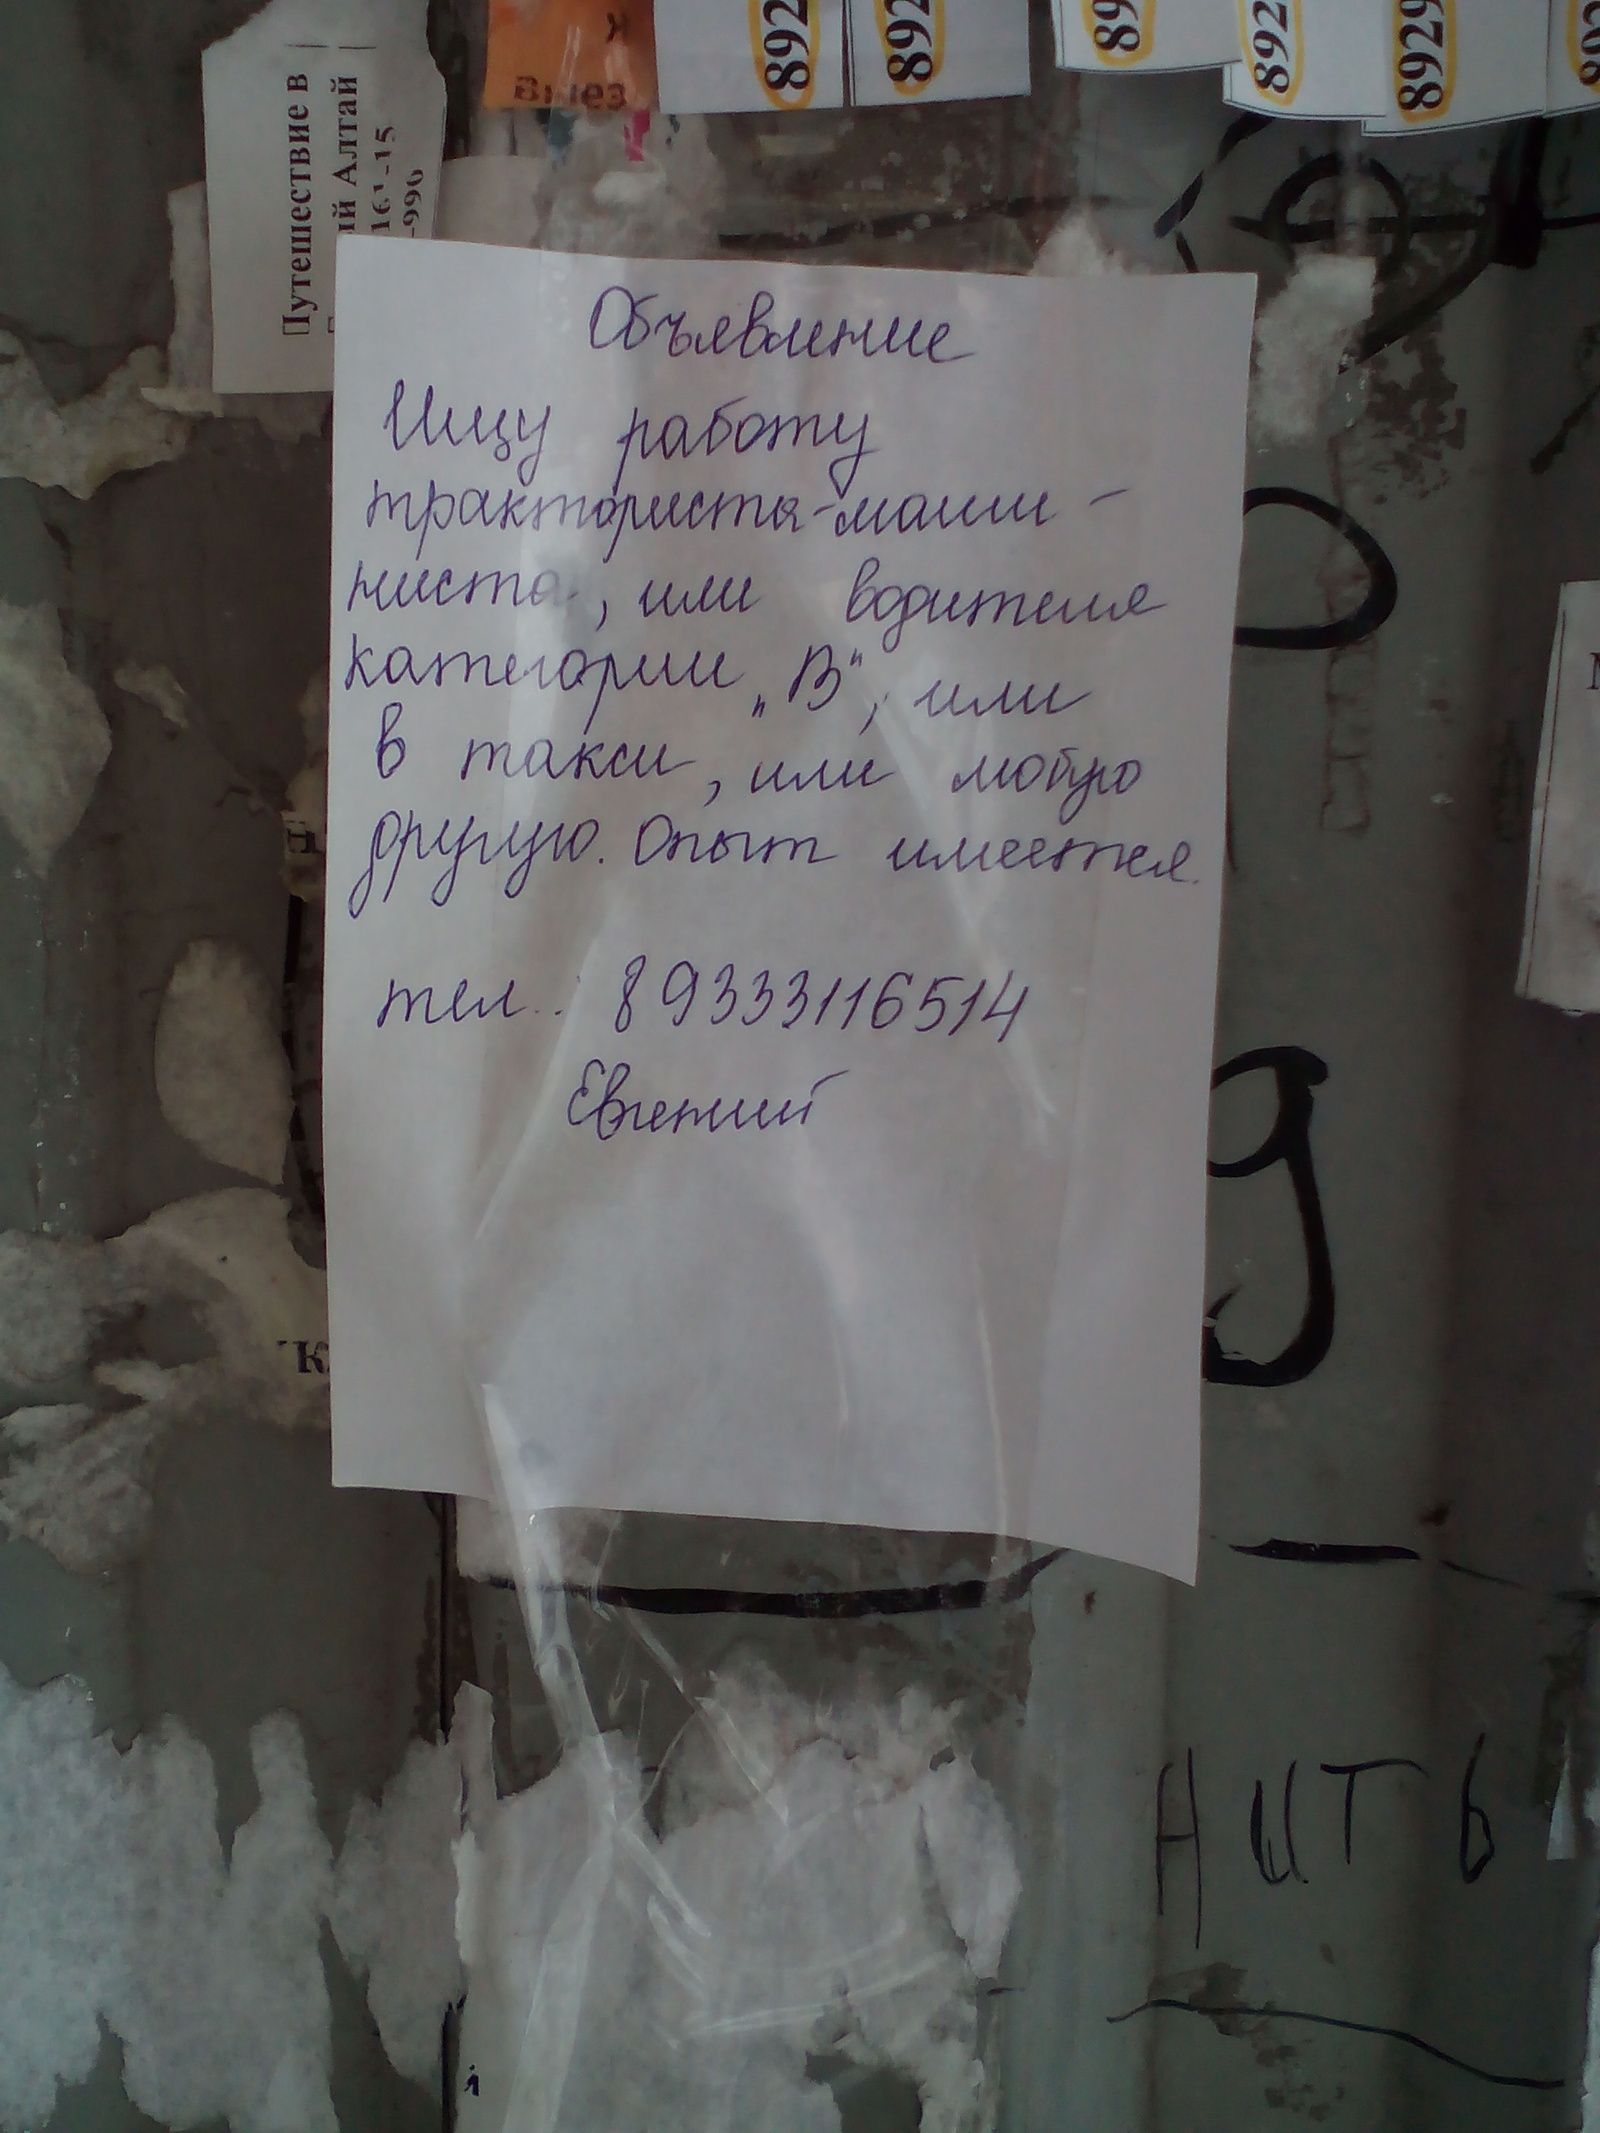 892
892
89
892
8929
Путешествие в
ый Алтай
Объявление
Ищу работу
тракториста-маши-
ниста, или водителя
категории „В“, или
в такси, или любую
другую. Опыт имеется.
тел.: 89333116514
Евгений
9
НИТЬ